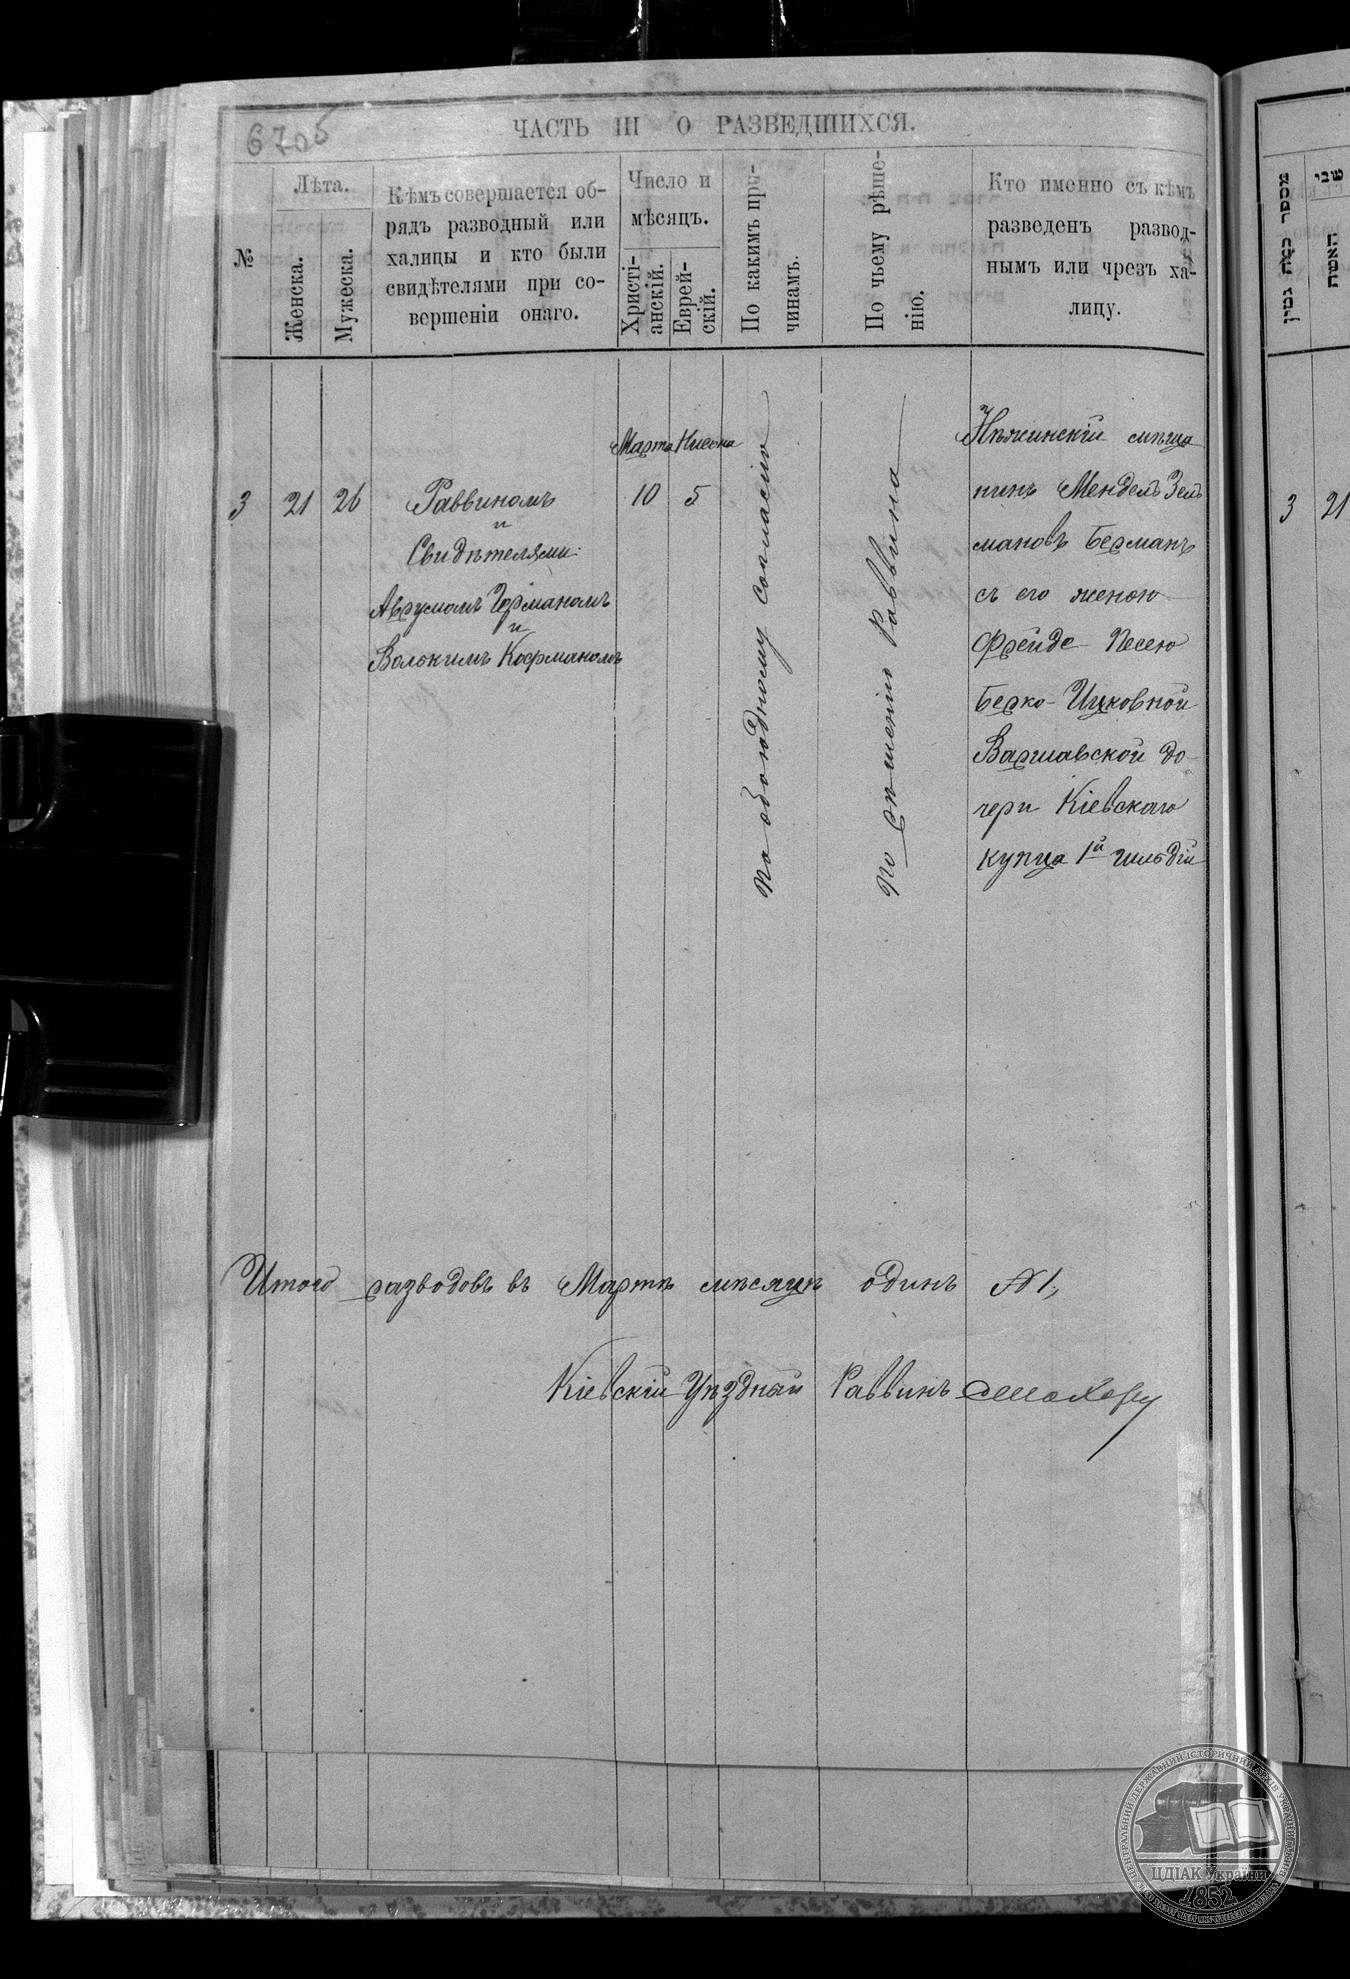 6705
ЧАСТЬ III О РАЗВЕДШИХСЯ.
№
Лѣта.
Женска.
Мужеска.
Кѣмъ совершается об-
рядъ разводный или
халицы и кто были
свидѣтелями при со-
вершеніи онаго.
Число и
мѣсяцъ.
Христі-
анскій.
Еврей-
скій.
По какимъ при-
чинамъ.
По чьему рѣше-
нію.
Кто именно съ кѣмъ
разведенъ развод-
нымъ или чрезъ ха-
лицу.
3
21
26
Раввиномъ
и
Свидѣтелями:
Аврумомъ Германомъ
и
Волькимъ Кофманомъ
Марта
10
Нисона
5
По обоюдному согласію
По рѣшенію Раввина
Нѣжинскій мѣща
нинъ Мендель Зель
мановъ Берманъ
съ его женою
Фрейде Песею
Берко-Ицковной
Варшавской до-
чери Кіевскаго
купца 1й гильдіи
Итого разводовъ въ Мартѣ мѣсяцѣ одинъ №1,
Кіевскій Уѣздный Раввинъ
מספר כמה גטין
שני
האשה
3
21
ЦЕНТРАЛЬНИЙ ДЕРЖАВНИЙ ІСТОРИЧНИЙ АРХІВ УКРАЇНИ
ЦДІАК України
1852